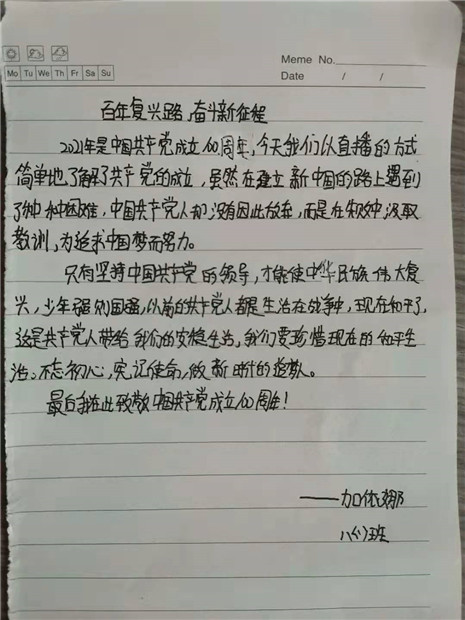 Meme No.
Mo Tu We Th Fr Sa Su
Date / /
百年复兴路,奋斗新征程
2021年是中国共产党成立100周年,今天我们以直播的方式
简单地了解了共产党的成立,虽然在建立新中国的路上遇到
了种种困难,中国共产党人却没有因此放弃,而是在失败中汲取
教训,为追求中国梦而努力。
只有坚持中国共产党的领导,才能使中华民族伟大复
兴,少年强则国强,以前的共产党人都是生活在战争中,现在和平了,
这是共产党人带给我们的安稳生活,我们要珍惜现在的和平生
活。不忘初心,牢记使命,做新时代的
最后我在此致敬中国共产党成立100周年!
——加依娜
八(1)班